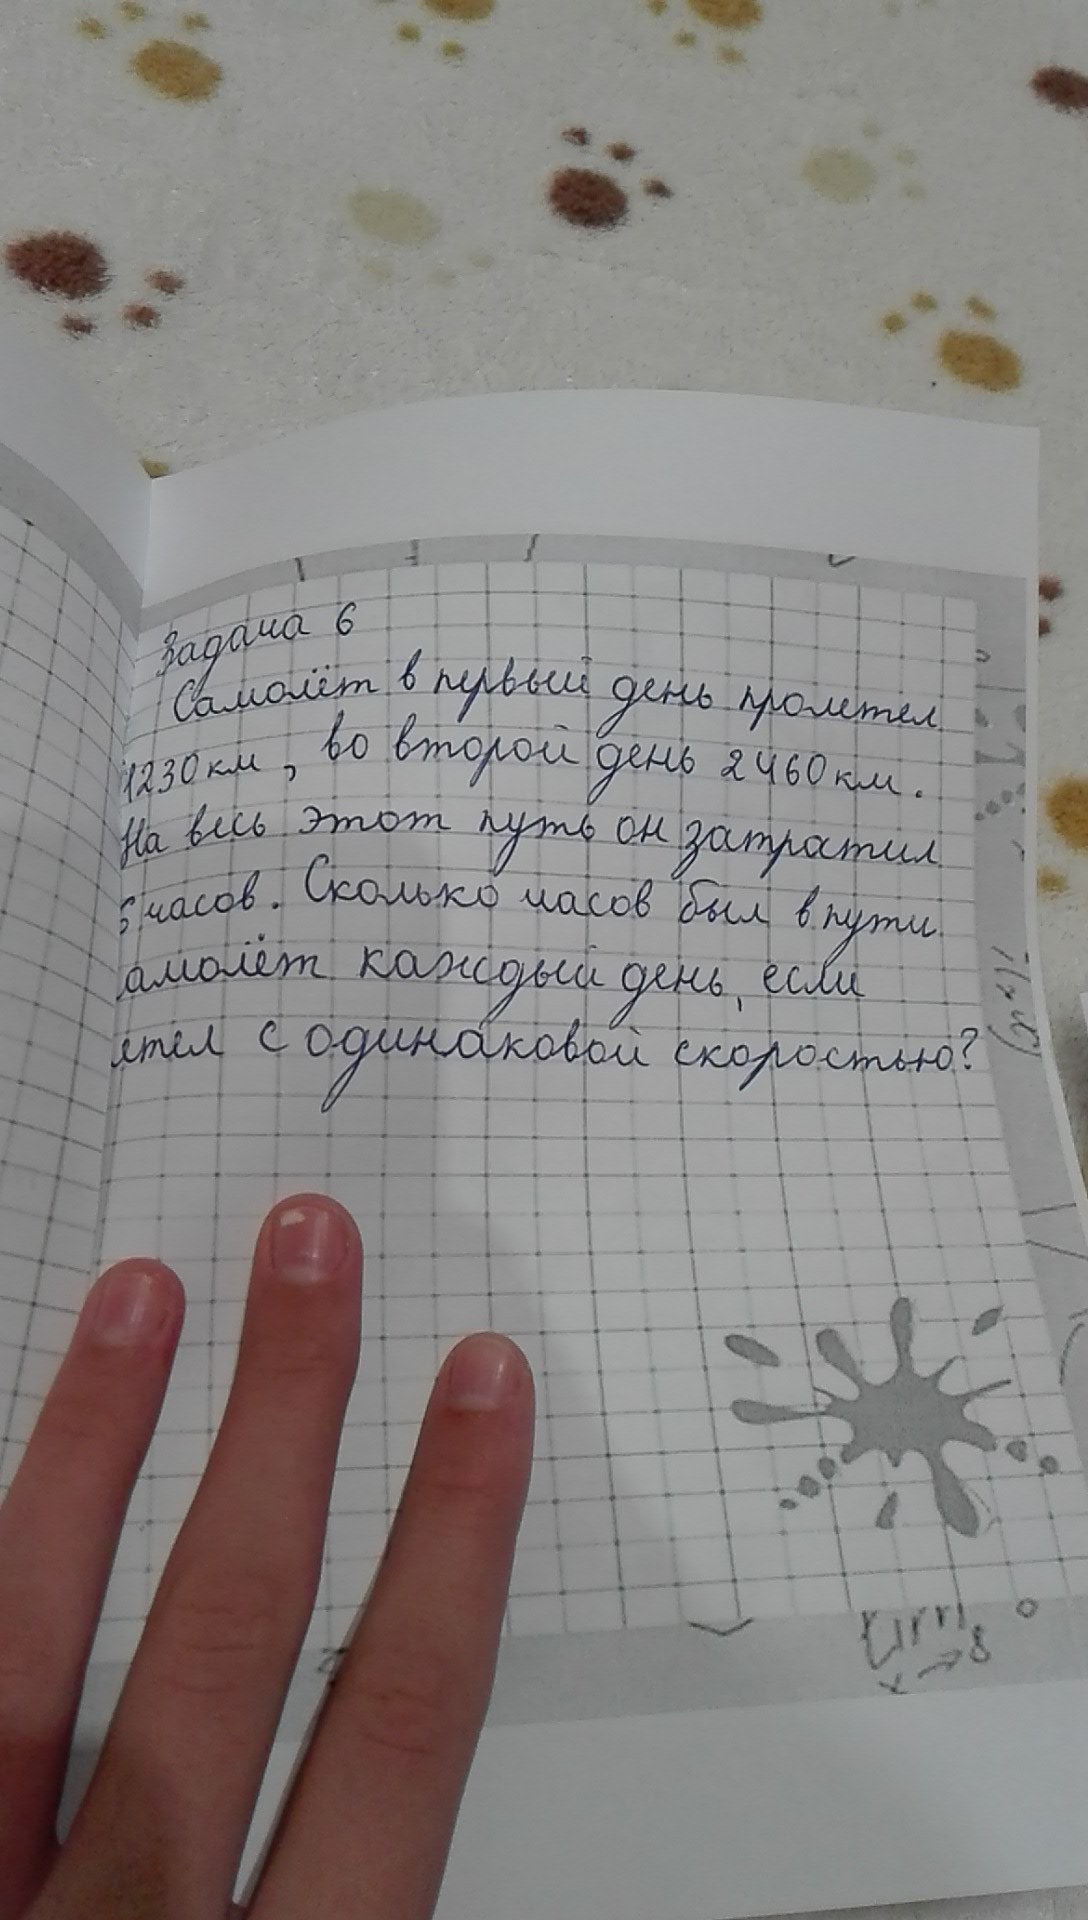 Задача 6
Самолёт в первый день пролетел
1230 км, во второй день 2460 км.
На весь этот путь он затратил
6 часов. Сколько часов был в пути
амолёт каждый день, если
летел с одинаковой скоростью?